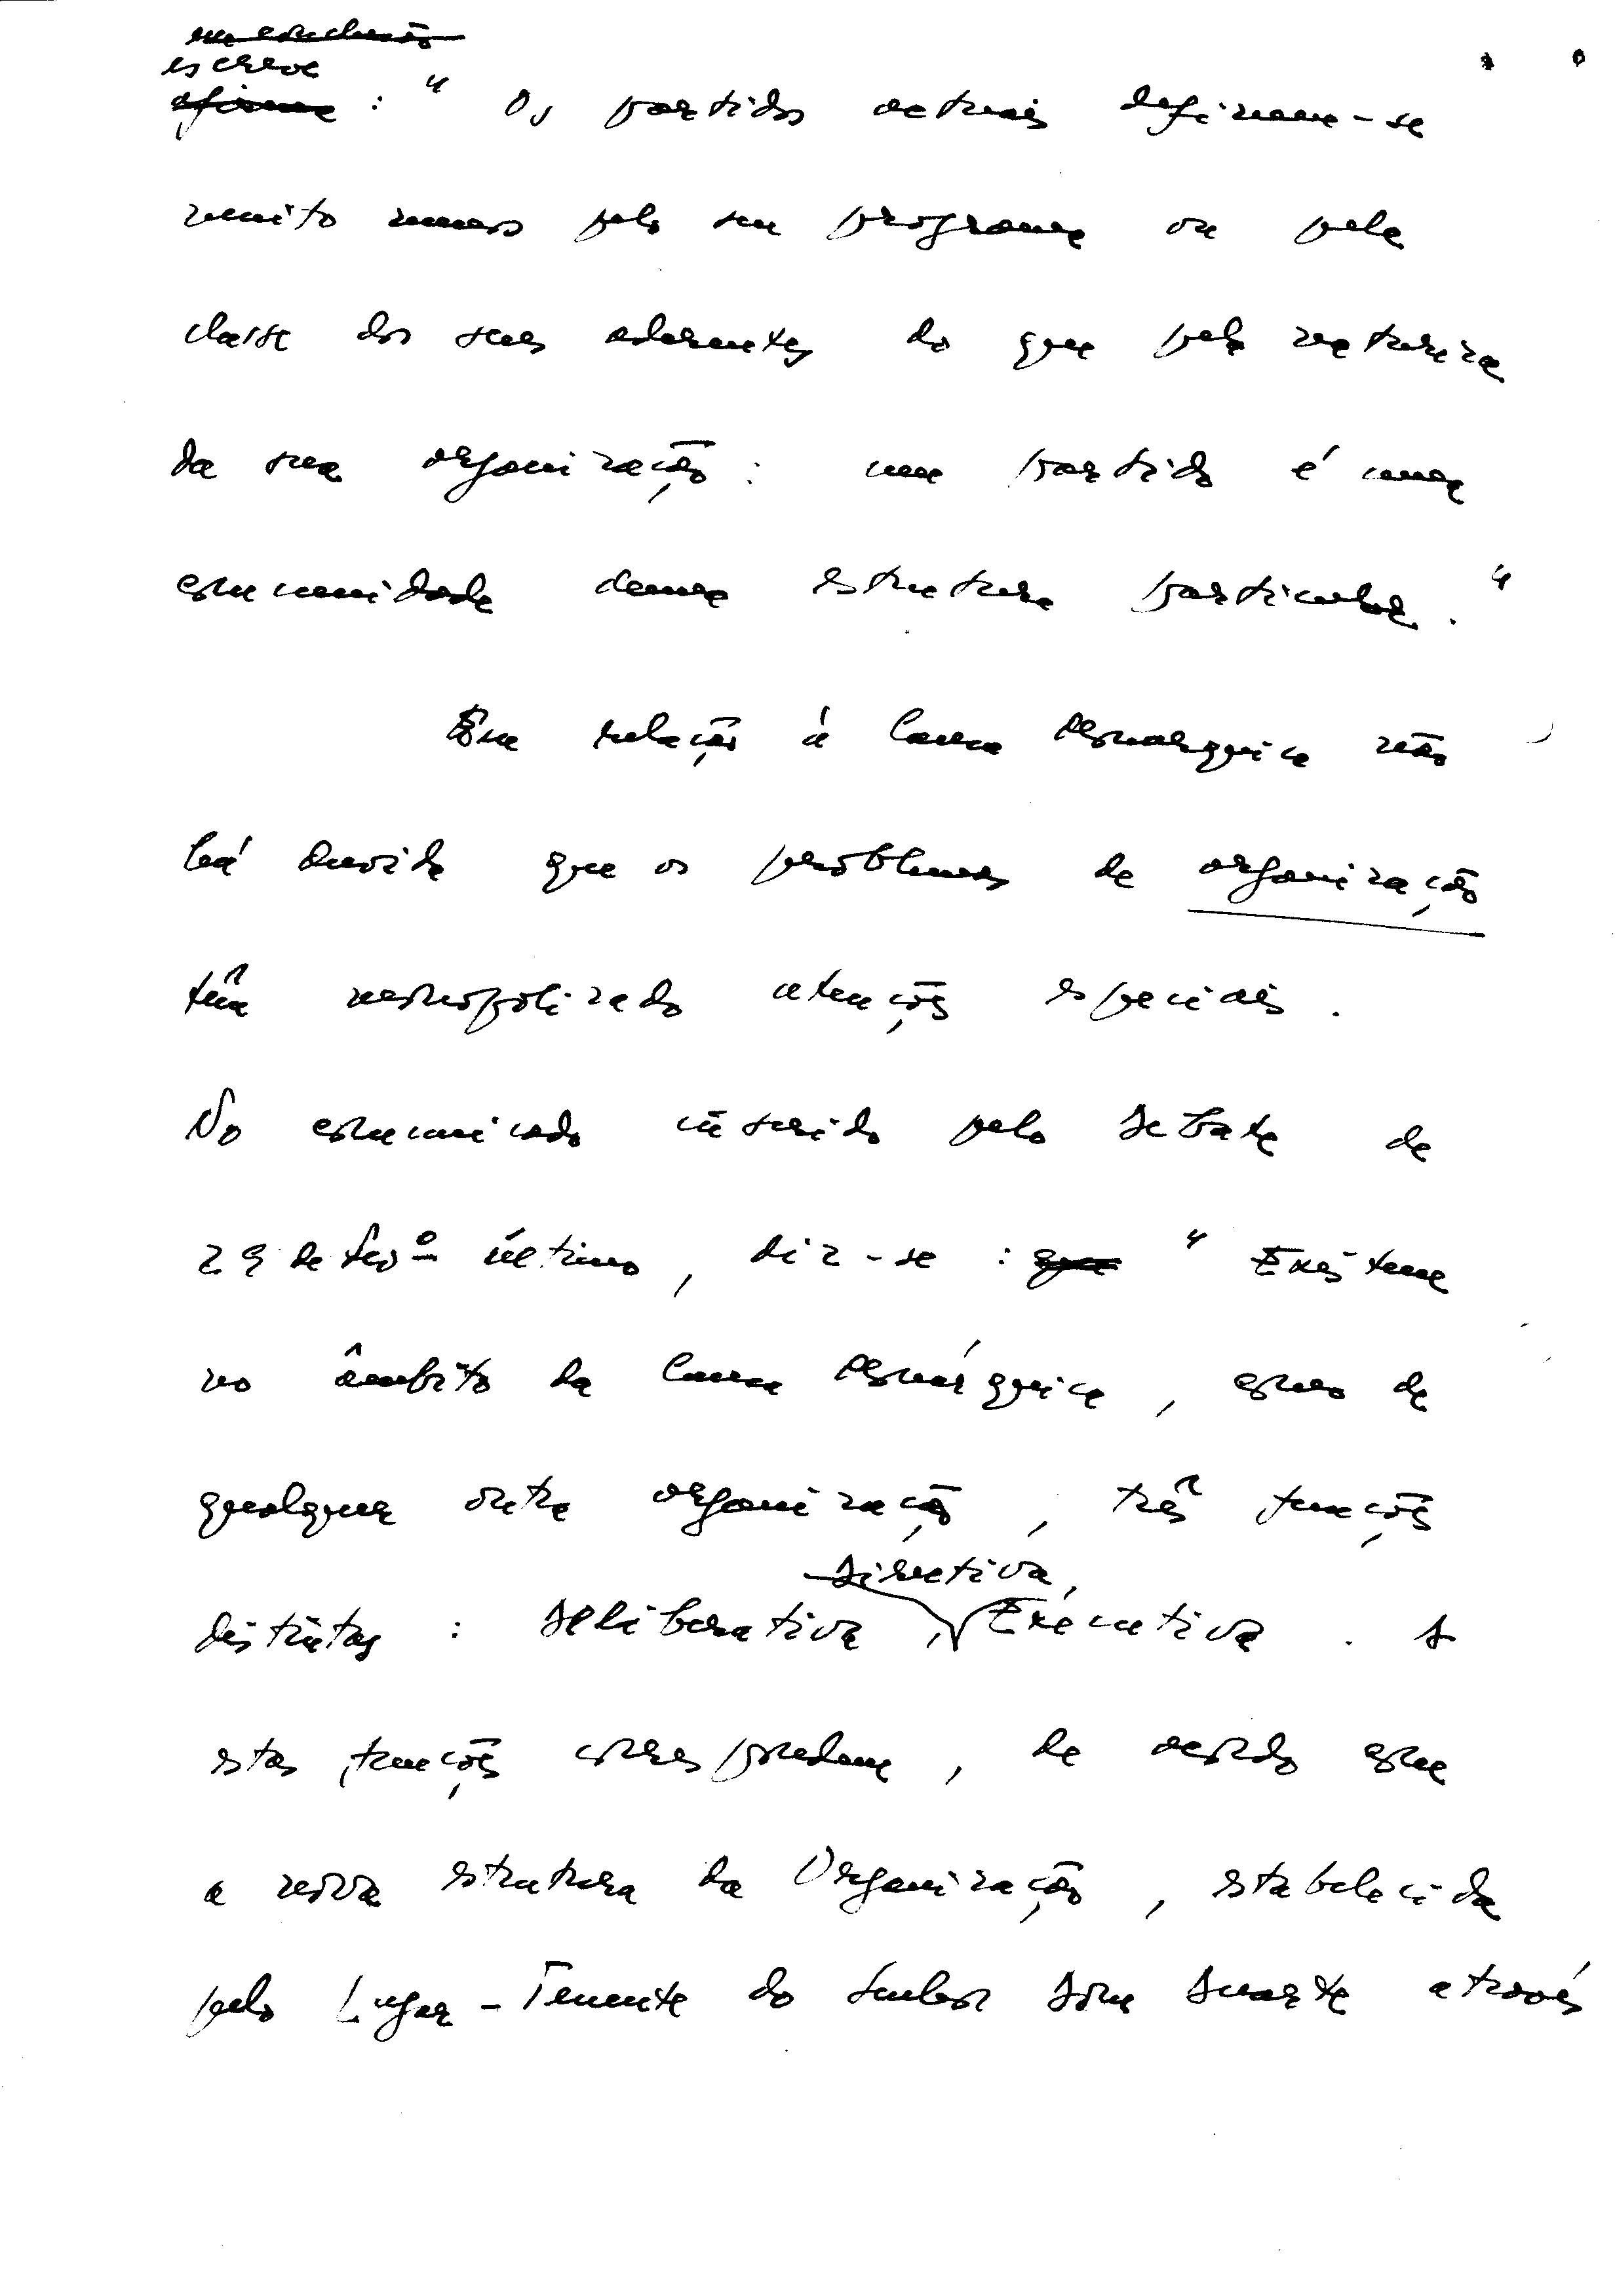 em conclusão
escreve
afirma : " Os partidos actuais definem-se
muito menos pelo seu programa ou pela
classe dos seus aderentes do que pela natureza
da sua organização : um partido é uma
comunidade duma estrutura particular. "
Em relação à Causa Monárquica não
há duvida que os problemas de organização
têm monopolizado atenções especiais.
No comunicado inserido pelo Debate de
29 de Fevº último, diz-se : que " Existem
no âmbito da Causa Monárquica, como de
qualquer outra organização, três funções
Directiva,
distintas : Deliberativa, Executiva. A
estas funções correspondem, de acordo com
a nova estrutura da Organização, estabelecida
pelo Lugar-Tenente do Senhor Dom Duarte através